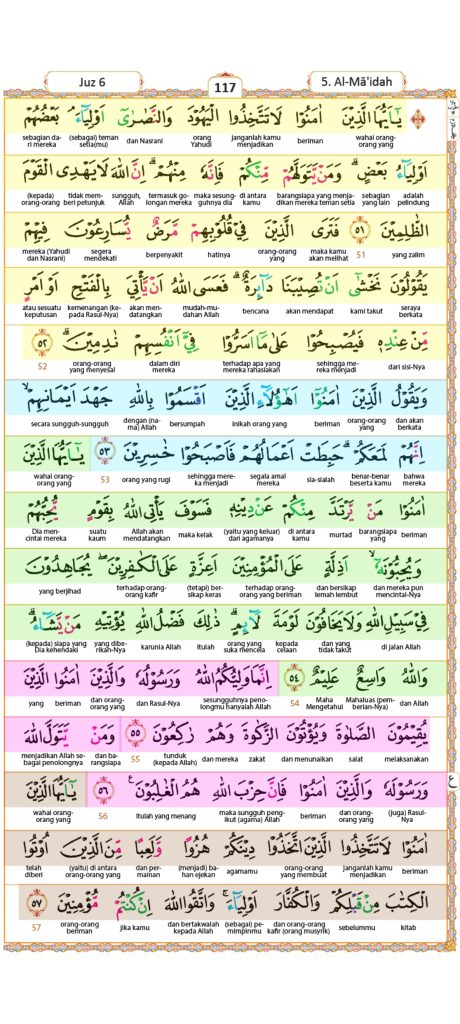 Juz 6
117
5. Al-Mā'idah
يٰٓاَيُّهَا الَّذِيْنَ اٰمَنُوْا لَا تَتَّخِذُوا الْيَهُوْدَ وَالنَّصٰرٰٓى اَوْلِيَاۤءَ ۘ بَعْضُهُمْ
wahai orang-orang yang beriman janganlah kamu menjadikan orang Yahudi dan Nasrani (sebagai) teman setia(mu) sebagian dari mereka
اَوْلِيَاۤءُ بَعْضٍۗ وَمَنْ يَّتَوَلَّهُمْ مِّنْكُمْ فَاِنَّهٗ مِنْهُمْۗ اِنَّ اللّٰهَ لَا يَهْدِى الْقَوْمَ
adalah pelindung sebagian yang lain barangsiapa yang menjadikan mereka teman setia di antara kamu maka sesungguhnya dia termasuk golongan mereka sungguh, Allah tidak memberi petunjuk (kepada) orang-orang
الظّٰلِمِيْنَ ٥١ فَتَرَى الَّذِيْنَ فِيْ قُلُوْبِهِمْ مَّرَضٌ يُّسَارِعُوْنَ فِيْهِمْ
yang zalim 51 maka kamu akan melihat orang-orang yang hatinya berpenyakit segera mendekati mereka (Yahudi dan Nasrani)
يَقُوْلُوْنَ نَخْشٰٓى اَنْ تُصِيْبَنَا دَاۤىِٕرَةٌ ۗفَعَسَى اللّٰهُ اَنْ يَّأْتِيَ بِالْفَتْحِ اَوْ اَمْرٍ
seraya berkata kami takut akan mendapat bencana mudah-mudahan Allah akan mendatangkan kemenangan (kepada Rasul-Nya) atau sesuatu keputusan
مِّنْ عِنْدِهٖ فَيُصْبِحُوْا عَلٰى مَآ اَسَرُّوْا فِيْٓ اَنْفُسِهِمْ نٰدِمِيْنَۗ ٥٢
dari sisi-Nya sehingga mereka menjadi terhadap apa yang mereka rahasiakan dalam diri mereka orang-orang yang menyesal 52
وَيَقُوْلُ الَّذِيْنَ اٰمَنُوْٓا اَهٰٓؤُلَاۤءِ الَّذِيْنَ اَقْسَمُوْا بِاللّٰهِ جَهْدَ اَيْمَانِهِمْۙ
dan akan berkata orang-orang yang beriman inikah orang yang bersumpah dengan (nama) Allah secara sungguh-sungguh
اِنَّهُمْ لَمَعَكُمْۗ حَبِطَتْ اَعْمَالُهُمْ فَاَصْبَحُوْا خٰسِرِيْنَ ٥٣ يٰٓاَيُّهَا الَّذِيْنَ
bahwa mereka benar-benar beserta kamu sia-sialah segala amal mereka sehingga mereka menjadi orang yang rugi 53 wahai orang-orang yang
اٰمَنُوْا مَنْ يَّرْتَدَّ مِنْكُمْ عَنْ دِيْنِهٖ فَسَوْفَ يَأْتِى اللّٰهُ بِقَوْمٍ يُّحِبُّهُمْ
beriman barangsiapa yang murtad di antara kamu (yaitu yang keluar) dari agamanya maka kelak Allah akan mendatangkan suatu kaum Dia mencintai mereka
وَيُحِبُّوْنَهٗٓ ۙاَذِلَّةٍ عَلَى الْمُؤْمِنِيْنَ اَعِزَّةٍ عَلَى الْكٰفِرِيْنَۖ يُجَاهِدُوْنَ
dan mereka pun mencintai-Nya dan bersikap lemah lembut terhadap orang-orang yang beriman (tetapi) bersikap keras terhadap orang-orang kafir yang berjihad
فِيْ سَبِيْلِ اللّٰهِ وَلَا يَخَافُوْنَ لَوْمَةَ لَاۤىِٕمٍۗ ذٰلِكَ فَضْلُ اللّٰهِ يُؤْتِيْهِ مَنْ يَّشَاۤءُۗ
di jalan Allah dan yang tidak takut kepada celaan orang yang suka mencela itulah karunia Allah yang diberikan-Nya (kepada) siapa yang Dia kehendaki
وَاللّٰهُ وَاسِعٌ عَلِيْمٌ ٥٤ اِنَّمَا وَلِيُّكُمُ اللّٰهُ وَرَسُوْلُهٗ وَالَّذِيْنَ اٰمَنُوا الَّذِيْنَ
dan Allah Mahaluas (pemberian-Nya) Maha Mengetahui 54 sesungguhnya penolongmu hanyalah Allah dan Rasul-Nya dan orang-orang yang beriman yang
يُقِيْمُوْنَ الصَّلٰوةَ وَيُؤْتُوْنَ الزَّكٰوةَ وَهُمْ رٰكِعُوْنَ ٥٥ وَمَنْ يَّتَوَلَّ اللّٰهَ
melaksanakan salat dan menunaikan zakat dan mereka tunduk (kepada Allah) 55 dan barangsiapa menjadikan Allah sebagai penolongnya
وَرَسُوْلَهٗ وَالَّذِيْنَ اٰمَنُوْا فَاِنَّ حِزْبَ اللّٰهِ هُمُ الْغٰلِبُوْنَ ࣖ ٥٦ يٰٓاَيُّهَا الَّذِيْنَ
ع
(juga) Rasul-Nya dan orang-orang yang beriman maka sungguh pengikut (agama) Allah itulah yang menang 56 wahai orang-orang yang
اٰمَنُوْا لَا تَتَّخِذُوا الَّذِيْنَ اتَّخَذُوْا دِيْنَكُمْ هُزُوًا وَّلَعِبًا مِّنَ الَّذِيْنَ اُوْتُوا
beriman janganlah kamu menjadikan orang-orang yang membuat agamamu (menjadi) bahan ejekan dan permainan (yaitu) di antara orang-orang yang telah diberi
الْكِتٰبَ مِنْ قَبْلِكُمْ وَالْكُفَّارَ اَوْلِيَاۤءَۚ وَاتَّقُوا اللّٰهَ اِنْ كُنْتُمْ مُّؤْمِنِيْنَ ٥٧
kitab sebelummu dan orang-orang kafir (orang musyrik) (sebagai) pemimpinmu dan bertakwalah kepada Allah jika kamu orang-orang beriman 57